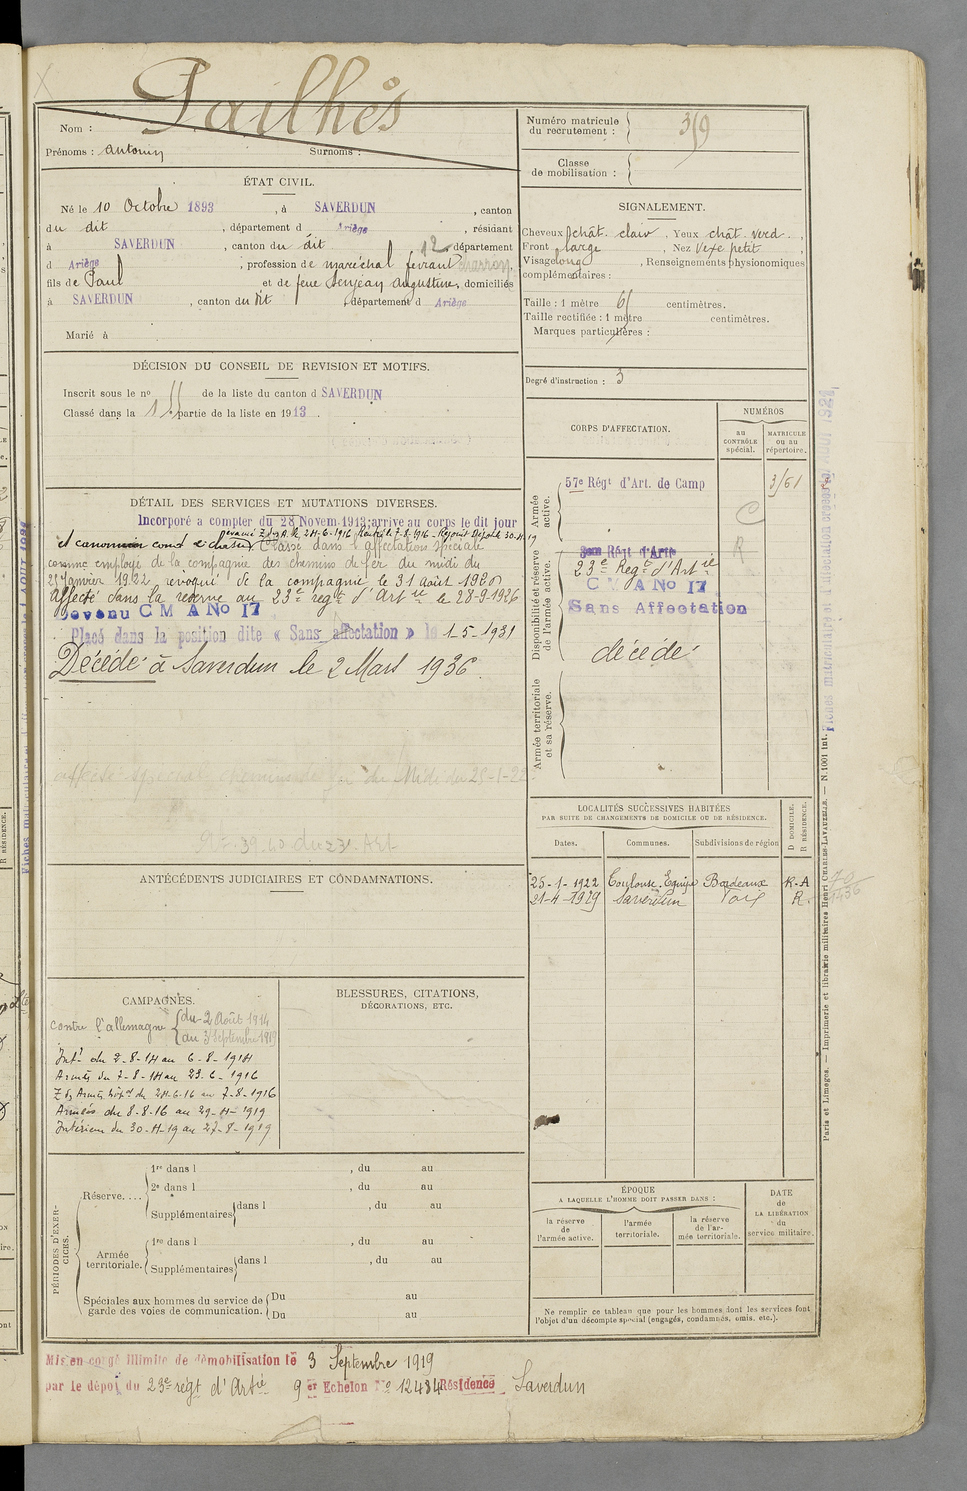 Pailhès
Nom :
Prénoms : Antonin Surnoms :
Numéro matricule du recrutement : 359
Classe de mobilisation :
ÉTAT CIVIL.
Né le 10 Octobre 1893, à SAVERDUN, canton
du dit, département d Ariège, résidant
à SAVERDUN, canton du dit, département
d Ariège, profession de maréchal ferrant
fils de Paul et de feue Senjean Augustine, domiciliés
à SAVERDUN, canton du dit, département d Ariège
Marié à
SIGNALEMENT.
Cheveux chât. clair, Yeux chât. verd.,
Front large, Nez Vexe petit
Visage long, Renseignements physionomiques
complémentaires :
Taille : 1 mètre 61 centimètres.
Taille rectifiée : 1 mètre centimètres.
Marques particulières :
Degré d'instruction : 3
DÉCISION DU CONSEIL DE REVISION ET MOTIFS.
Inscrit sous le nº 55 de la liste du canton d SAVERDUN
Classé dans la 1 partie de la liste en 1913.
CORPS D'AFFECTATION.
NUMÉROS
au CONTRÔLE spécial.
MATRICULE ou au répertoire.
Armée active.
57e Régt d'Art. de Camp 3161
Disponibilité et réserve de l'armée active.
23e Regt d'Artie
C M A No 17
Sans Affectation
décédé
C
R
Armée territoriale et sa réserve.
DÉTAIL DES SERVICES ET MUTATIONS DIVERSES.
Incorporé a compter du 28 Novem. 1913: arrive au corps le dit jour
et canonnier cond Classé dans l'affectation spéciale
comme employé de la compagnie des chemins de fer du midi du
25 Janvier 1922 de la compagnie le 31 août 1926
affecté dans la réserve au 23e regt d'Artie le 28-9-1926
Devenu C M A No 17
Placé dans la position dite « Sans affectation » le 1-5-1931
Décédé à Saverdun le 2 Mars 1936.
affecté spécial chemins de fer du Midi du 25-1-22
LOCALITÉS SUCCESSIVES HABITÉES
PAR SUITE DE CHANGEMENTS DE DOMICILE OU DE RÉSIDENCE.
Dates. Communes. Subdivisions de région D DOMICILE. R RÉSIDENCE.
25-1-1922 Toulouse Bordeaux R-A
21-4-1929 Saverdun Foix R.
ANTÉCÉDENTS JUDICIAIRES ET CONDAMNATIONS.
CAMPAGNES.
contre l'allemagne du 2 Août 1914
au 3 Septembre 1919
Intr du 2-8-14 au 6-8-1914
Armées du 7-8-14 au 23-6-1916
du 24-6-16 au 7-8-1916
Armées du 8-8-16 au 29-4-1919
Intérieur du 30-4-19 au 27-8-1919
BLESSURES, CITATIONS,
DÉCORATIONS, ETC.
PÉRIODES D'EXERCICES.
Réserve....
1re dans l , du au
2e dans l , du au
Supplémentaires dans l , du au
Armée territoriale.
1re dans l , du au
Supplémentaires dans l , du au
Spéciales aux hommes du service de garde des voies de communication.
Du au
Du au
ÉPOQUE
A LAQUELLE L'HOMME DOIT PASSER DANS :
la réserve de l'armée active.
l'armée territoriale.
la réserve de l'armée territoriale.
DATE de LA LIBÉRATION du service militaire.
Ne remplir ce tableau que pour les hommes dont les services font
l'objet d'un décompte spécial (engagés, condamnés, omis, etc.).
Paris et Limoges. — Imprimerie et librairie militaires Henri CHARLES-LAVAUZELLE. — N. 1001 Int.
Mis en congé illimité de démobilisation le 3 Septembre 1919
par le dépôt du 23e régt d'Artie 9 er Echelon No 12484 Résidence Saverdun